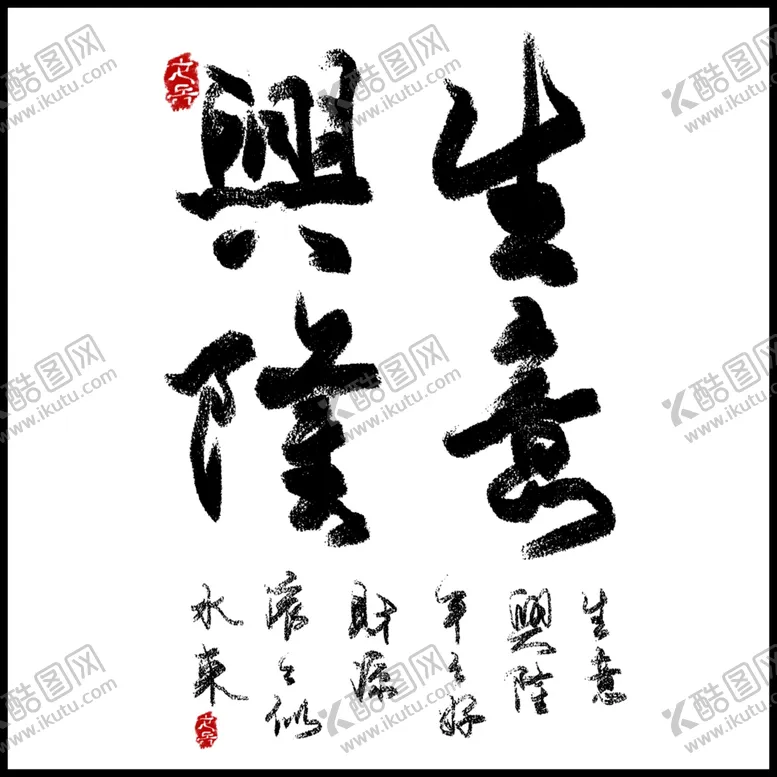 生意
興隆
生意
興隆
年々好
財源
滾々似
水來
酷图网
www.ikutu.com
酷图网
www.ikutu.com
酷图网
www.ikutu.com
酷图网
www.ikutu.com
酷图网
www.ikutu.com
酷图网
www.ikutu.com
酷图网
www.ikutu.com
酷图网
www.ikutu.com
酷图网
www.ikutu.com